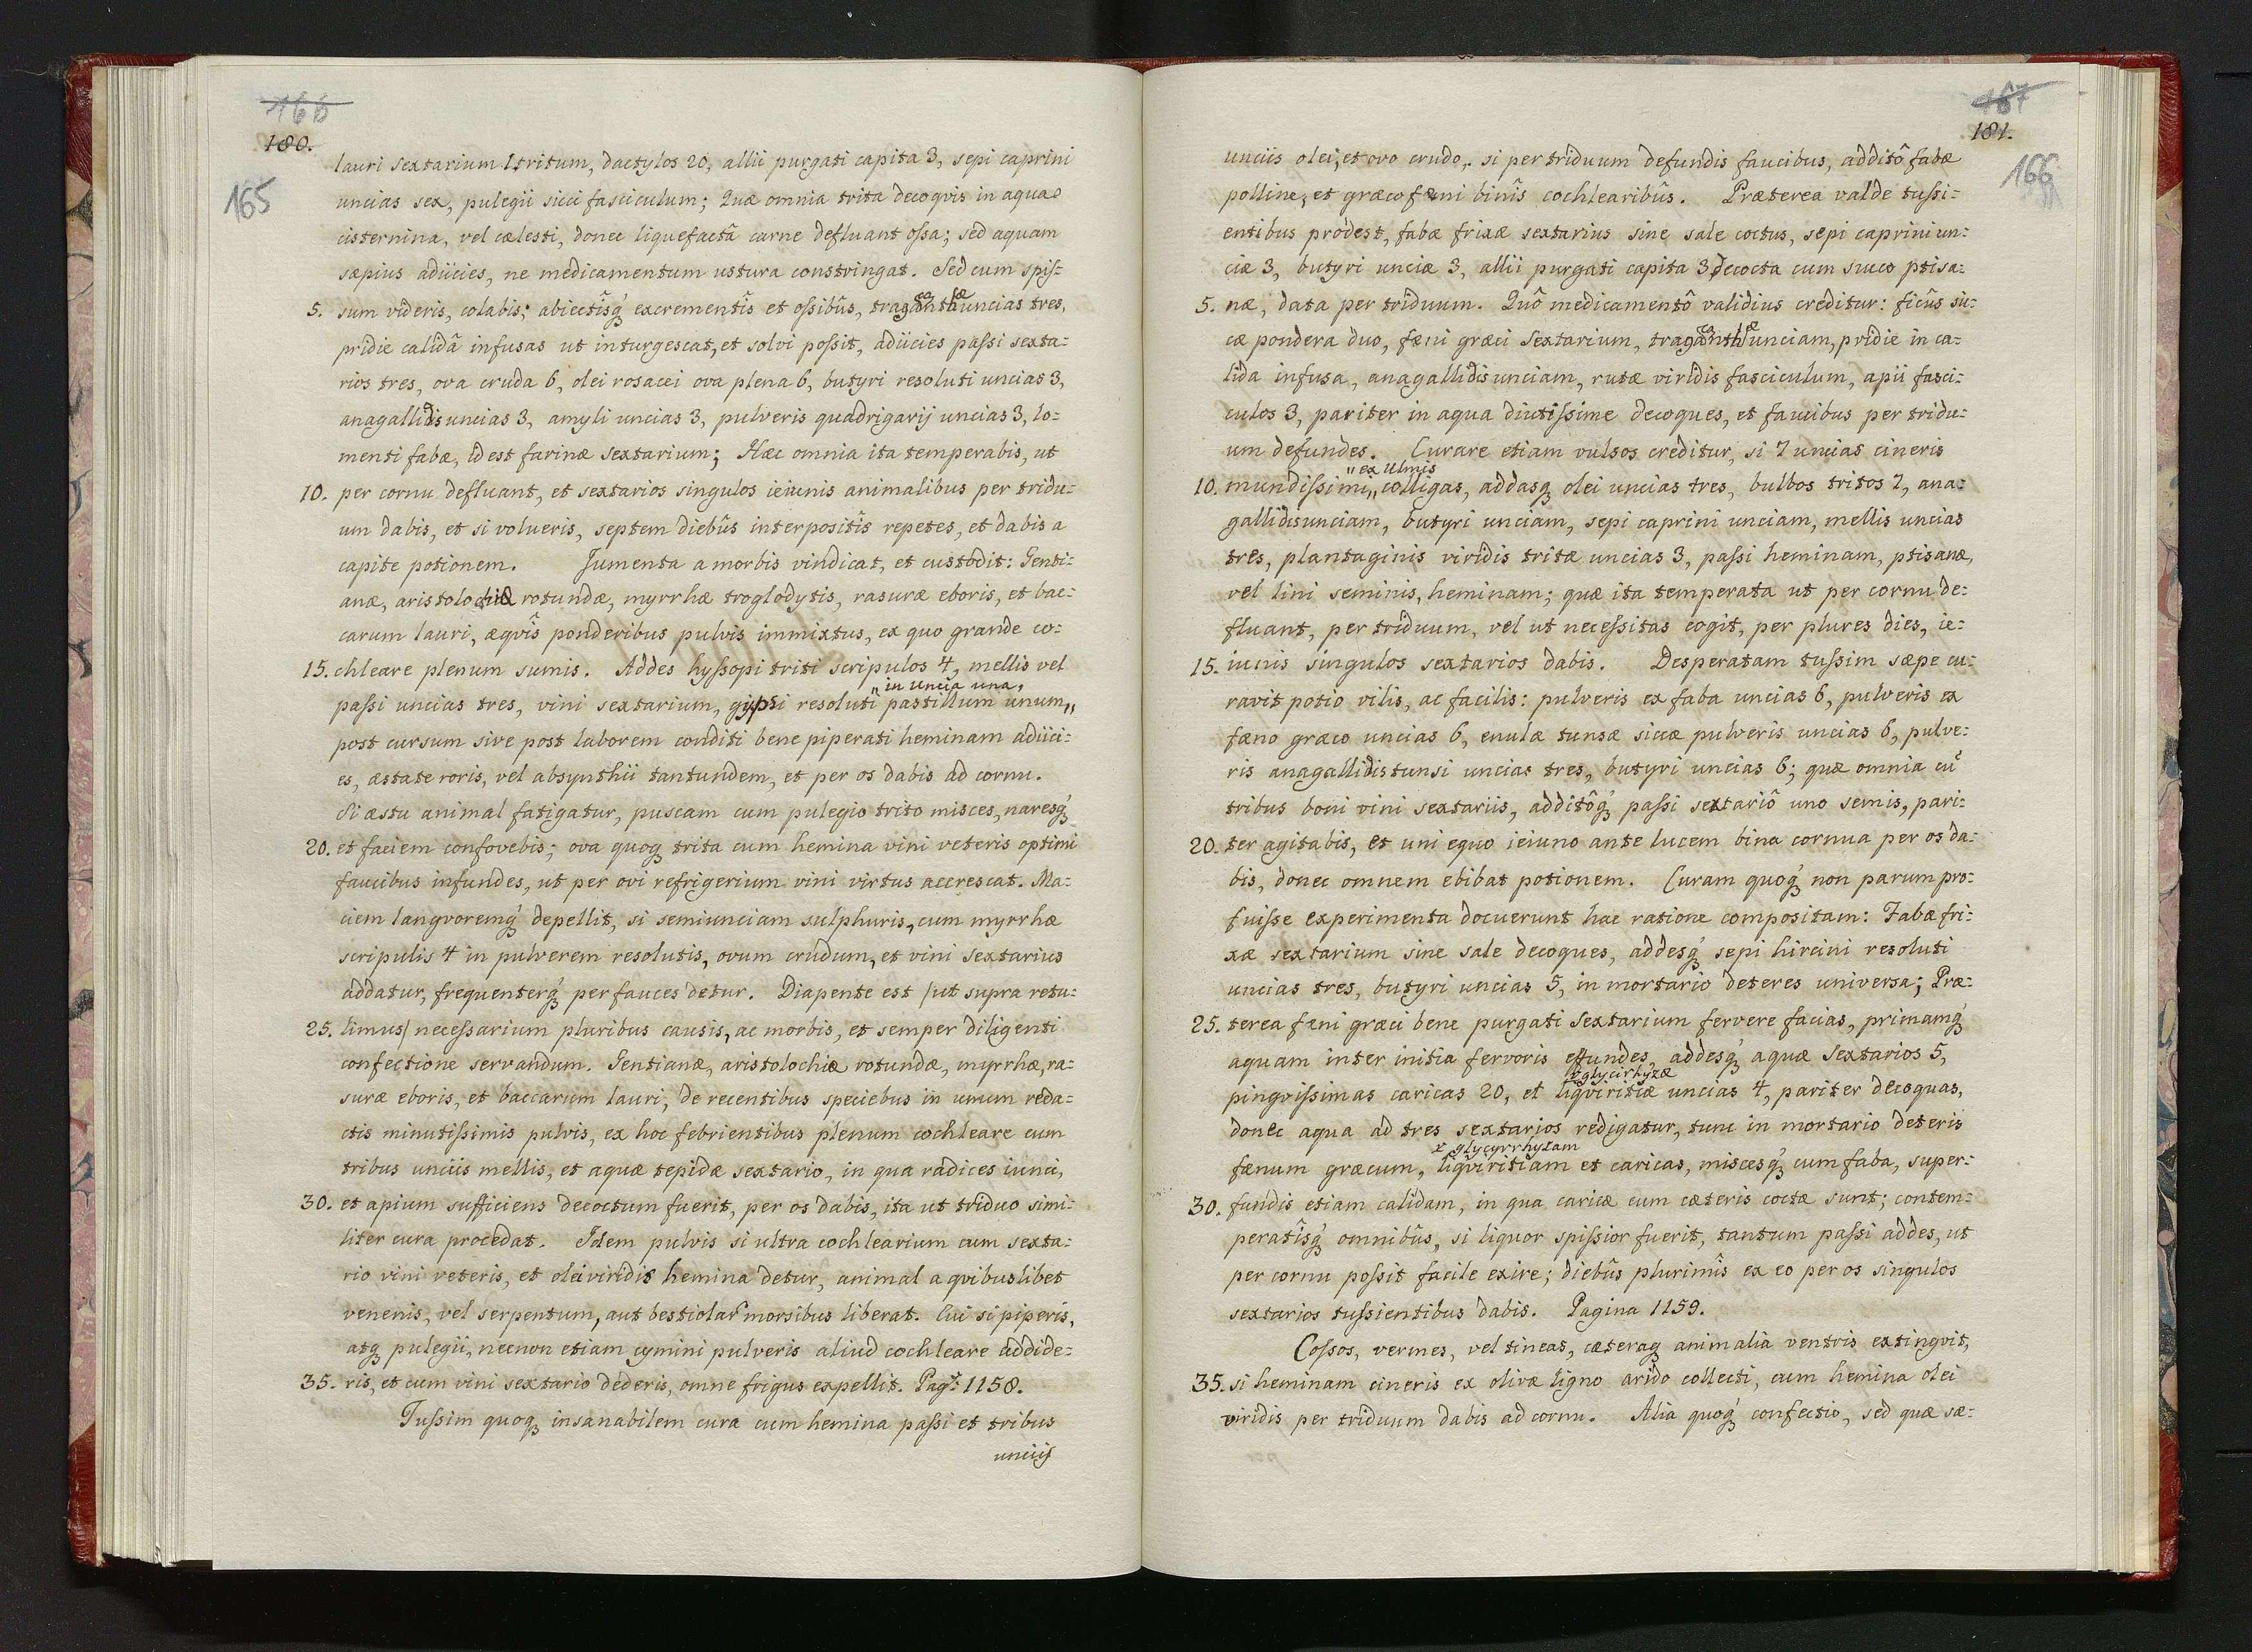 166
180.
165
lauri sextarium 1 tritum, dactylos 20, allii purgati capita 3, sepi caprini
uncias sex, pulegii sicci fasciculum; Quæ omnia trita decoqvis in aqua
cisternina, vel cælesti, donec liquefactâ carne defluant ossa; sed aquam
sæpius adiicies, ne medicamentum ustura constringat. Sed cum spis=
5. sum videris, colabis; abiectîsq́ excrementîs et ossibûs, tragacanthæ uncias tres,
pridie calidâ infusas ut inturgescat, et solvi possit, adiicies passi sexta=
rios tres, ova cruda 6, olei rosacei ova plena 6, butyri resoluti uncias 3,
anagallidis uncias 3, amyli uncias 3, pulveris quadrigarij uncias 3, lo=
menti fabæ, id est farinæ sextarium; Hæc omnia ita temperabis, ut
10. per cornu defluant, et sextarios singulos ieiunis animalibus per tridu=
um dabis, et si volueris, septem diebûs interpositîs repetes, et dabis a
capite potionem. Jumenta a morbis vindicat, et custodit: Genti=
anæ, aristolochiæ rotundæ, myrrhæ troglodytis, rasuræ eboris, et bac=
carum lauri, æqvîs ponderibus pulvis immixtus, ex quo grande co=
15. chleare plenum sumis. Addes hyssopi triti scripulos 4, mellis vel
„ in uncia una,
passi uncias tres, vini sextarium, gypsi resoluti pastillum unum„
post cursum sive post laborem conditi bene piperati heminam adiici=
es, æstate roris, vel absynthii tantundem, et per os dabis ad cornu.
Si æstu animal fatigatur, puscam cum pulegio trito misces, naresq́
20. et faciem confovebis; ova quoq trita cum hemina vini veteris optimi
faucibus infundes, ut per ovi refrigerium vini virtus accrescat. Ma=
ciem langvoremq́ depellit, si semiunciam sulphuris, cum myrrhæ
scripulis 4 in pulverem resolutis, ovum crudum, et vini sextarius
addatur, frequenterq́ per fauces detur. Diapente est /ut supra retu=
25. limus/ necessarium pluribus causis, ac morbis, et semper diligenti
confectione servandum. Gentianæ, aristolochiæ rotundæ, myrrhæ, ra=
suræ eboris, et baccarum lauri, de recentibus speciebus in unum reda=
ctis minutissimis pulvis, ex hoc febrientibus plenum cochleare cum
tribus unciis mellis, et aquæ tepidæ sextario, in qua radices iunci,
30. et apium sufficiens decoctum fuerit, per os dabis, ita ut triduo simi=
liter cura procedat. Idem pulvis si ultra cochlearium cum sexta=
rio vini veteris, et olei viridis hemina detur, animal a qvibuslibet
venenis, vel serpentum, aut bestiolar morsibus liberat. Cui si piperis,
atq pulegii, necnon etiam cymini pulveris aliud cochleare addide=
35. ris, et cum vini sextario dederis, omne frigus expellit. Pag. 1158.
Tussim quoq insanabilem cura cum hemina passi et tribus
unciis
167
181.
166
unciis olei, et ovo crudo, si per triduum defundis faucibus, additô fabæ
polline, et græco fæni binîs cochlearibûs. Præterea valde tussi=
entibus prodest, fabæ frixæ sextarius sine sale coctus, sepi caprini un=
ciæ 3, butyri unciæ 3, allii purgati capita 3 decocta cum succo ptisa=
5. næ, data per triduum. Quô medicamentô validius creditur: ficûs sic=
cæ pondera duo, fæni græci sextarium, tragacanthæ unciam, pridie in ca=
lida infusa, anagallidis unciam, rutæ viridis fasciculum, apii fasci=
culos 3, pariter in aqua diutissime decoques, et faucibus per tridu=
um defundes. Curare etiam vulsos creditur, si 7 uncias cineris
„ ex ulmis
10. mundissimi„ colligas, addasq olei uncias tres, bulbos tritos 7, ana=
gallidis unciam, butyri unciam, sepi caprini unciam, mellis uncias
tres, plantaginis viridis tritæ uncias 3, passi heminam, ptisanæ,
vel lini seminis, heminam; quæ ita temperata ut per cornu de=
fluant, per triduum, vel ut necessitas cogit, per plures dies, ie=
15. iunis singulos sextarios dabis. Desperatam tussim sæpe cu=
ravit potio vilis, ac facilis: pulveris ex faba uncias 6, pulveris ex
fæno græco uncias 6, enulæ tunsæ siccæ pulveris uncias 6, pulve=
ris anagallidis tunsi uncias tres, butyri uncias 6; quæ omnia cū
tribus boni vini sextariis, additôq́ passi sextariô uno semis, pari=
20. ter agitabis, et uni equo ieiuno ante lucem bina cornua per os da=
bis, donec omnem ebibat potionem. Curam quoq́ non parum pro=
fuisse experimenta docuerunt hac ratione compositam: Fabæ fri=
xæ sextarium sine sale decoques, addesq́ sepi hircini resoluti
uncias tres, butyri uncias 5, in mortario deteres universa; Præ=
25. terea fæni græci bene purgati sextarium fervere facias, primamq́
aquam inter initia fervoris effundes, addesq́ aquæ sextarios 5,
v glycirhyzæ
pingvissimas caricas 20, et liqviritiæ uncias 4, pariter decoquas,
donec aqua ad tres sextarios redigatur, tunc in mortario deteris
v glycyrrhyzam
fænum græcum, liqviritiam et caricas, miscesq́ cum faba, super=
30. fundis etiam calidam, in qua caricæ cum cæteris coctæ sunt; contem=
peratîsq́ omnibûs, si liquor spissior fuerit, tantum passi addes, ut
per cornu possit facile exire; diebûs plurimîs ex eo per os singulos
sextarios tussientibus dabis. Pagina 1159.
Cossos, vermes, vel tineas, cæteraq animalia ventris extingvit,
35. si heminam cineris ex olivæ ligno arido collecti, cum hemina olei
viridis per triduum dabis ad cornu. Alia quoq́ confectio, sed quæ sæ=